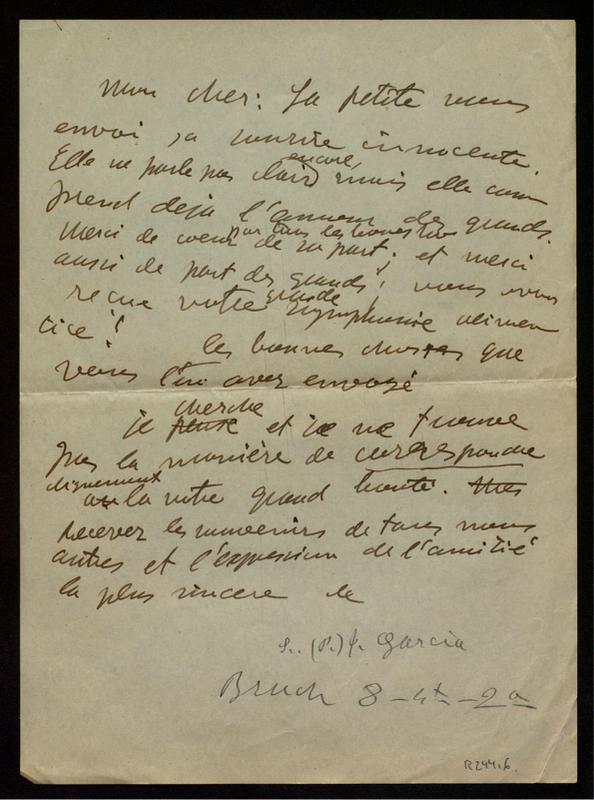 Mon cher: La petite vous
envoi sa sourire innocente.
Elle ne parle pas encore clair, mais elle com
prend deja l'amour de grands.
par tous les
Merci de coeur de sa part; et merci
aussi de part des grands! nous avons
reçue votre grande symphonie alimen
tice!
les bonnes choses que
vous avez envoyé
je cherche et je ne trouve
pas la manière de correspondre
dignement
a la votre grand bonté.
Recevez les souvenirs de tous nous
autres et l'expression de l'amitié
la plus sincere de
Garcia
Bruch 8-4t-2a
R244.6.